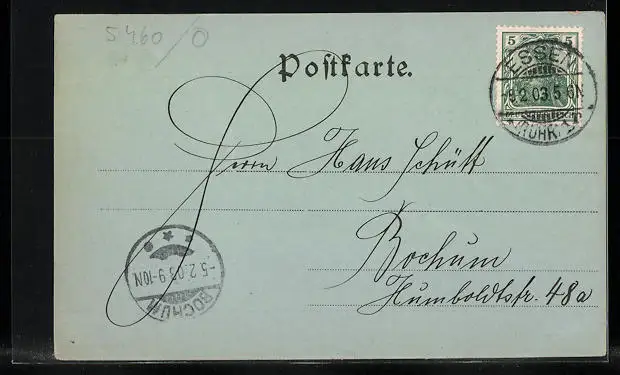 5460/0
Postkarte.
5 5
ESSEN
5.2.03.5-6N
(RUHR) 1
Herrn Hans Schütt
Bochum
Humboldtstr. 48a
-5.2.03.9-10N
BOCHUM